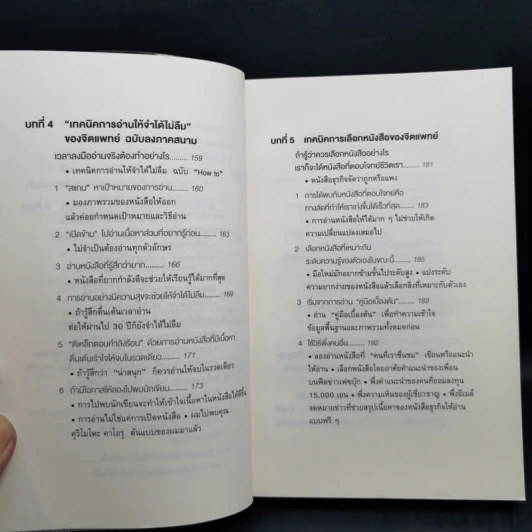 บทที่ 4 “เทคนิคการอ่านให้จำได้ไม่ลืม”
ของจิตแพทย์ ฉบับลงภาคสนาม
เวลาลงมืออ่านจริงต้องทำอย่างไร......... 159
• เทคนิคการอ่านให้จำได้ไม่ลืม ฉบับ “How to”
1 “สแกน” หาเป้าหมายของการอ่าน............ 160
• มองภาพรวมของหนังสือให้ออก
แล้วค่อยกำหนดเป้าหมายและวิธีอ่าน
2 “เปิดข้าม” ไปอ่านเนื้อหาส่วนที่อยากรู้ก่อน........ 163
• ไม่จำเป็นต้องอ่านทุกตัวอักษร
3 อ่านหนังสือที่รู้สึกว่ายาก............. 166
• หนังสือที่ยากกำลังดีจะช่วยให้เรียนรู้ได้มากที่สุด
4 การอ่านอย่างมีความสุขจะช่วยให้จำได้ไม่ลืม......... 169
• ถ้ารู้สึกตื่นเต้นเวลาอ่าน
ต่อให้ผ่านไป 30 ปีก็ยังจำได้ไม่ลืม
5 “ตีเหล็กตอนกำลังร้อน” ด้วยการอ่านหนังสือที่มีเนื้อหา
ตื่นเต้นเร้าใจให้จบในรวดเดียว......... 171
• ถ้ารู้สึกว่า “น่าสนุก” ก็ควรอ่านให้จบในรวดเดียว
6 ถ้ามีโอกาสให้ลองไปพบนักเขียน......... 173
• การไปพบนักเขียนจะทำให้เข้าใจเนื้อหาในหนังสือได้ดีขึ้น
• การอ่านไม่ใช่แค่การเปิดหนังสือ • ผมไปพบคุณ
คุริโมโตะ คาโอรุ ต้นแบบของผมมาแล้ว
บทที่ 5 เทคนิคการเลือกหนังสือของจิตแพทย์
ถ้ารู้ว่าควรเลือกหนังสืออย่างไร
เราก็จะได้หนังสือที่ตอบโจทย์ชีวิตเรา............ 181
• หนังสือธุรกิจจัดว่าถูกหรือแพง
1 การได้พบกับหนังสือที่ตอบโจทย์คือ
ทางลัดที่ทำให้เราเก่งขึ้นได้เร็วที่สุด............ 183
• การอ่านหนังสือให้ได้มาก ๆ ไม่ช่วยให้เกิด
ความเปลี่ยนแปลงเสมอไป
2 เลือกหนังสือที่เหมาะกับ
ระดับความรู้ของตัวเองในขณะนี้......... 185
• มือใหม่มักอยากข้ามขั้นไประดับสูง • แบ่งระดับ
ความยากง่ายของหนังสือแล้วเลือกสิ่งที่เหมาะกับตัวเอง
3 เริ่มจากการอ่าน “คู่มือเบื้องต้น”............ 189
• อ่าน “คู่มือเบื้องต้น” เพื่อทำความเข้าใจ
ข้อมูลพื้นฐานและภาพรวมทั้งหมดก่อน
4 ใช้วิธีพึ่งคนอื่น............ 192
• ลองอ่านหนังสือที่ “คนที่เราชื่นชม” เขียนหรือแนะนำ
ให้อ่าน • เลือกหนังสือโดยอาศัยคำแนะนำของเพื่อน
บนฟีดข่าวเฟซบุ๊ก • พึ่งคำแนะนำของคนที่ยอมลงทุน
15,000 เยน • พึ่งความเห็นของผู้เชี่ยวชาญ • พึ่งอีเมล์
จดหมายข่าวที่ช่วยสรุปเนื้อหาของหนังสือธุรกิจให้อ่าน
แบบฟรี ๆ